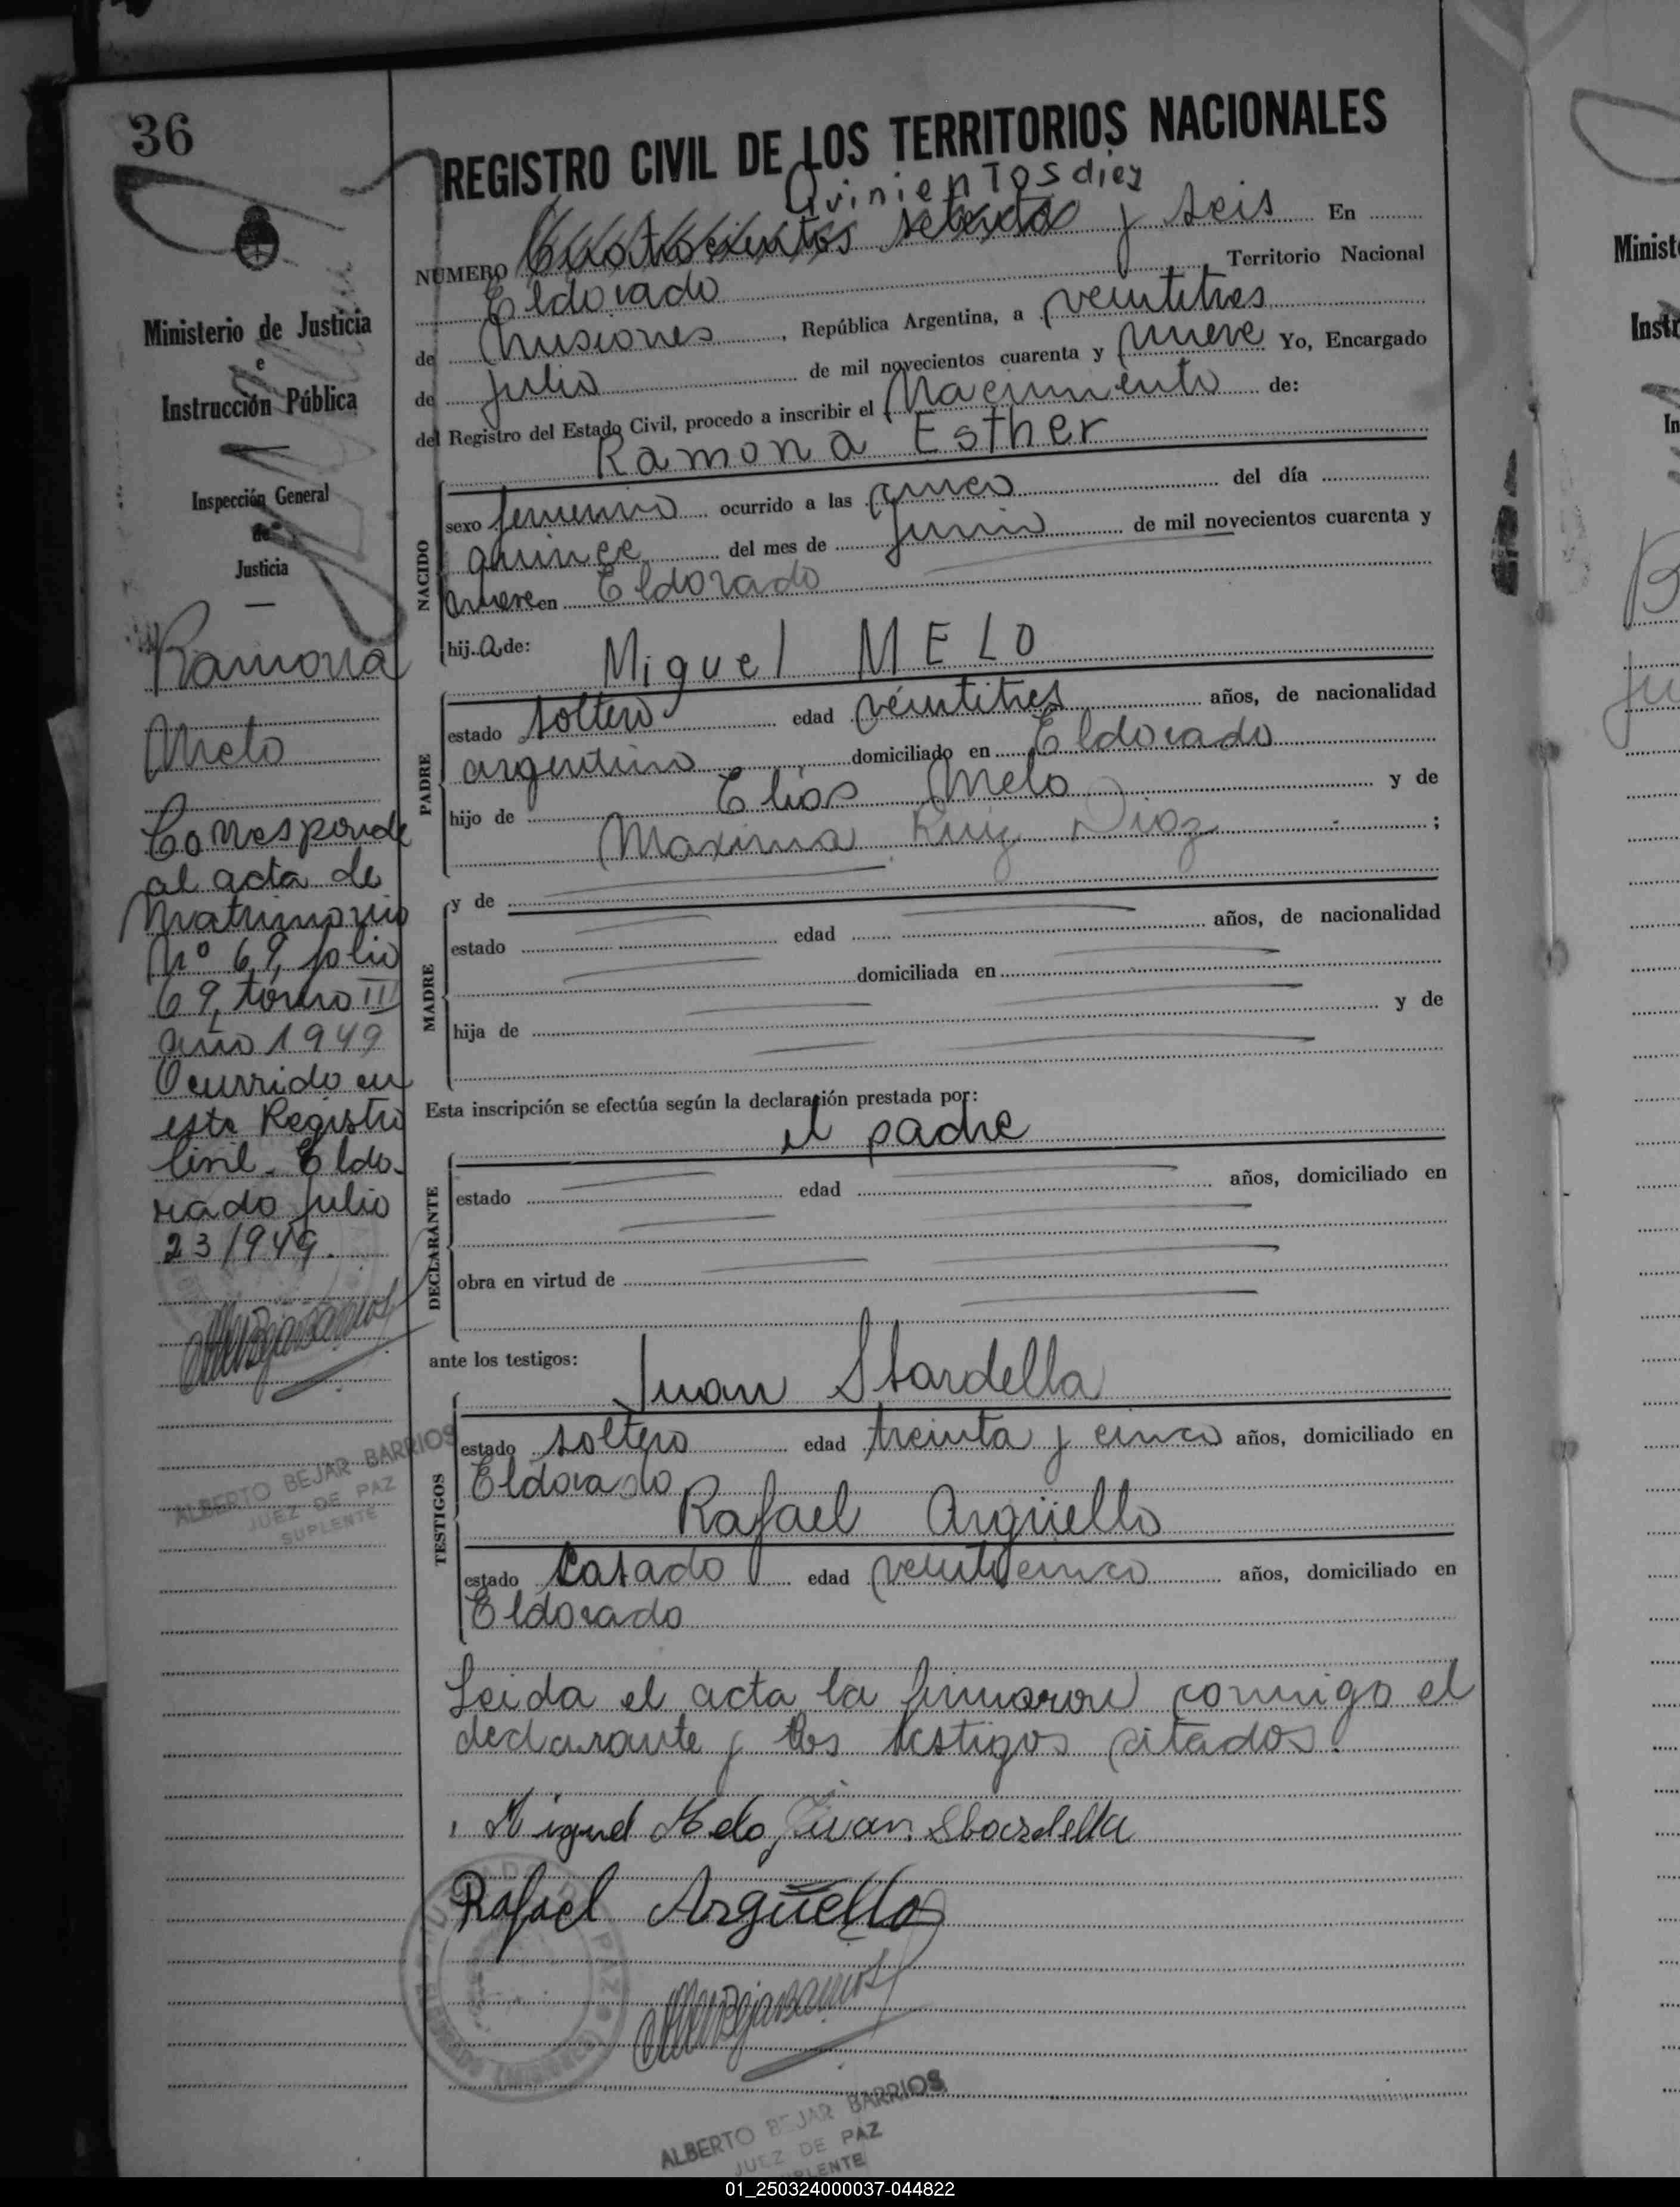 36
REGISTRO CIVIL DE LOS TERRITORIOS NACIONALES
Quinientos diez
NUMERO Cuatrocientos setenta y seis En
Eldorado Territorio Nacional
de Misiones, República Argentina, a veintitres
de julio de mil novecientos cuarenta y nueve Yo, Encargado
del Registro del Estado Civil, procedo a inscribir el Nacimiento de:
Ramona Esther
NACIDO
sexo femenino ocurrido a las cinco del día
quince del mes de junio de mil novecientos cuarenta y
nueve en Eldorado
hija de: Miguel MELO
PADRE
estado soltero edad veintitres años, de nacionalidad
argentino domiciliado en Eldorado
hijo de Elias Melo y de
Maxima Ruiz Diaz ;
MADRE
y de
estado edad años, de nacionalidad
domiciliada en
hija de y de
Esta inscripción se efectúa según la declaración prestada por:
el padre
DECLARANTE
estado edad años, domiciliado en
obra en virtud de
ante los testigos: Juan Sbardella
TESTIGOS
estado soltero edad treinta y cinco años, domiciliado en
Eldorado
Rafael Argüello
estado casado edad veinticinco años, domiciliado en
Eldorado
Leida el acta la firmaron conmigo el
declarante y los testigos citados.
Miguel Melo, Juan Sbardella
Rafael Argüello
ALBERTO BEJAR BARRIOS
JUEZ DE PAZ
SUPLENTE
Ministerio de Justicia
e
Instrucción Pública
Inspección General
de
Justicia
Ramona
Melo
Corresponde
al acta de
Matrimonio
Nº 69, folio
69, tomo III
año 1949
Ocurrido en
este Registro
Civil. Eldo-
rado julio
23/949.
ALBERTO BEJAR BARRIOS
JUEZ DE PAZ
SUPLENTE
01_250324000037-044822